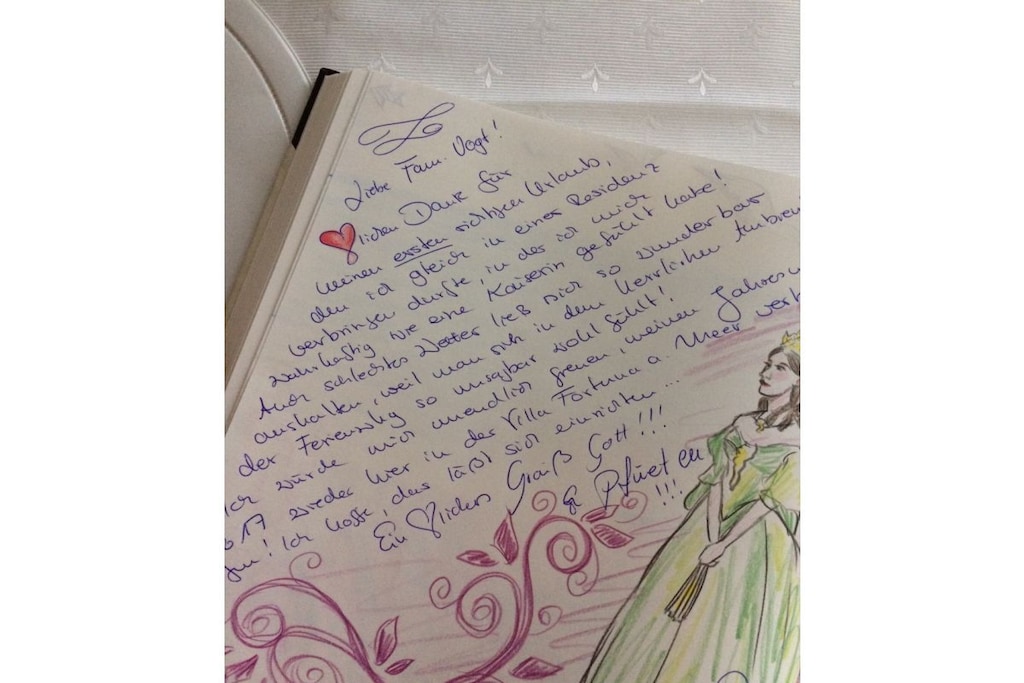 Liebe Fam. Vogt!
❤lichen Dank für
meinen ersten richtigen Urlaub,
den ich gleich in einer Residenz
verbringen durfte, in der ich mich
wahrhaftig wie eine Kaiserin gefühlt habe!
Auch schlechtes Wetter ließ sich so wunderbar
aushalten, weil man sich in dem herrlichen Ambien
der Ferienwhg so unsagbar wohl fühlt!
Ich würde mich unendlich freuen, meinen Jahresu
17 wieder hier in der Villa Fortuna a. Meer verb
Ich hoffe, das läßt sich einrichten...
Ein ❤liches Grüß Gott!!!
& Pfüet eu
!!!